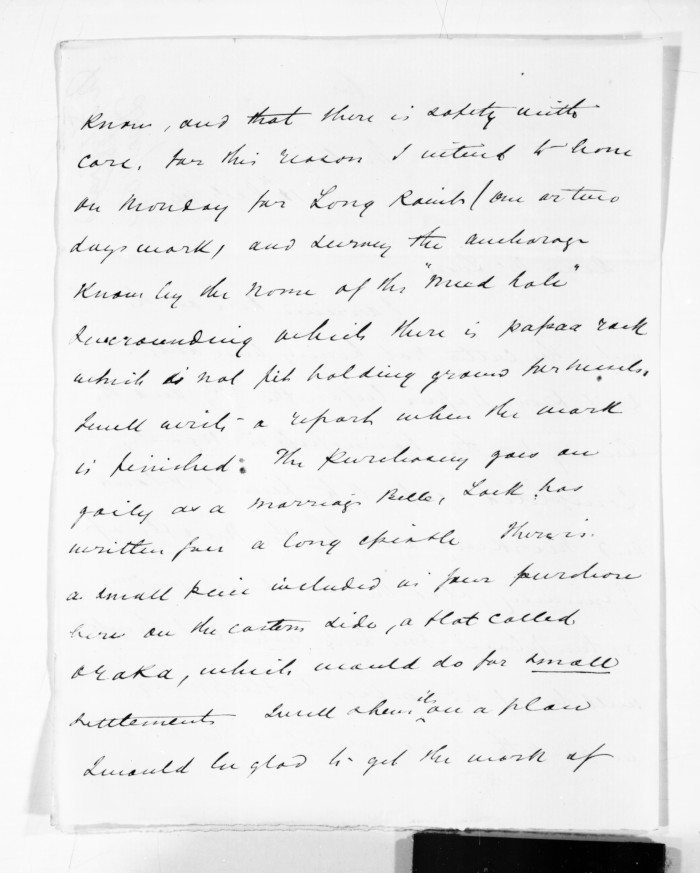 know, and that there is safety with
care. for this reason I intend to leave
on Monday for Long Point (one or two
days work, and survey the anchorage
known by the name of the "Mud hole"
surrounding which there is papaa rock
which is not fit holding ground
I will write a report when the work
is finished. The Purchasing goes on
gaily as a marriage Bell, Lock has
written you a long epistle There is
a small piece included in your purchase
here on the eastern side, a flat called
oraka, which would do for small
settlements I will shew it on a plan
I would be glad to get the work of